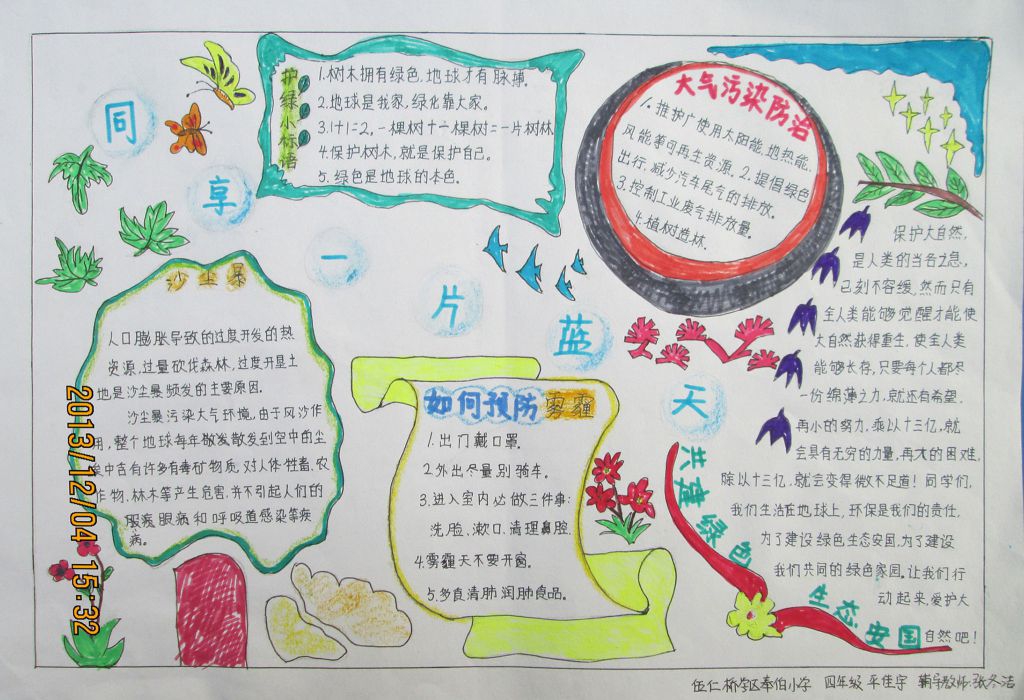 同
享
一
片
蓝
天
护绿小标语
1.树木拥有绿色,地球才有脉搏。
2.地球是我家,绿化靠大家。
3.1+1=2,一棵树+一棵树=一片树林
4.保护树木,就是保护自己。
5.绿色是地球的本色。
大气污染防治
1.推护广使用太阳能,地热能,
风能等可再生资源。2.提倡绿色
出行,减少汽车尾气的排放。
3.控制工业废气排放量。
4.植树造林.
沙尘暴
人口膨胀导致的过度开发的热
资源,过量砍伐森林,过度开垦土
地是沙尘暴频发的主要原因.
沙尘暴污染大气环境,由于风沙作
用,整个地球每年散发到空中的尘
埃中含有许多有毒矿物质,对人体,牲畜,农
作物,林木等产生危害,并不引起人们的
眼病和呼吸道感染等疾
病。
如何预防雾霾
1.出门戴口罩。
2.外出尽量别骑车.
3.进入室内必做三件事:
洗脸、漱口、清理鼻腔
4.雾霾天不要开窗。
5.多食清肺润肺食品。
保护大自然,
是人类的当务之急,
已刻不容缓,然而只有
全人类能够觉醒才能使
大自然获得重生,使全人类
能够长存,只要每个人都尽
一份绵薄之力,就还有希望.
再小的努力,乘以十三亿,就
会具有无穷的力量,再大的困难,
除以十三亿,就会变得微不足道!同学们,
我们生活在地球上,环保是我们的责任,
为了建设绿色生态安国,为了建设
我们共同的绿色家园,让我们行
动起来,爱护大
自然吧!
共建绿色
生态安国
伍仁桥学区奉伯小学 四年级 平佳宇 辅导教师:张冬洁
2013/12/04 15:32